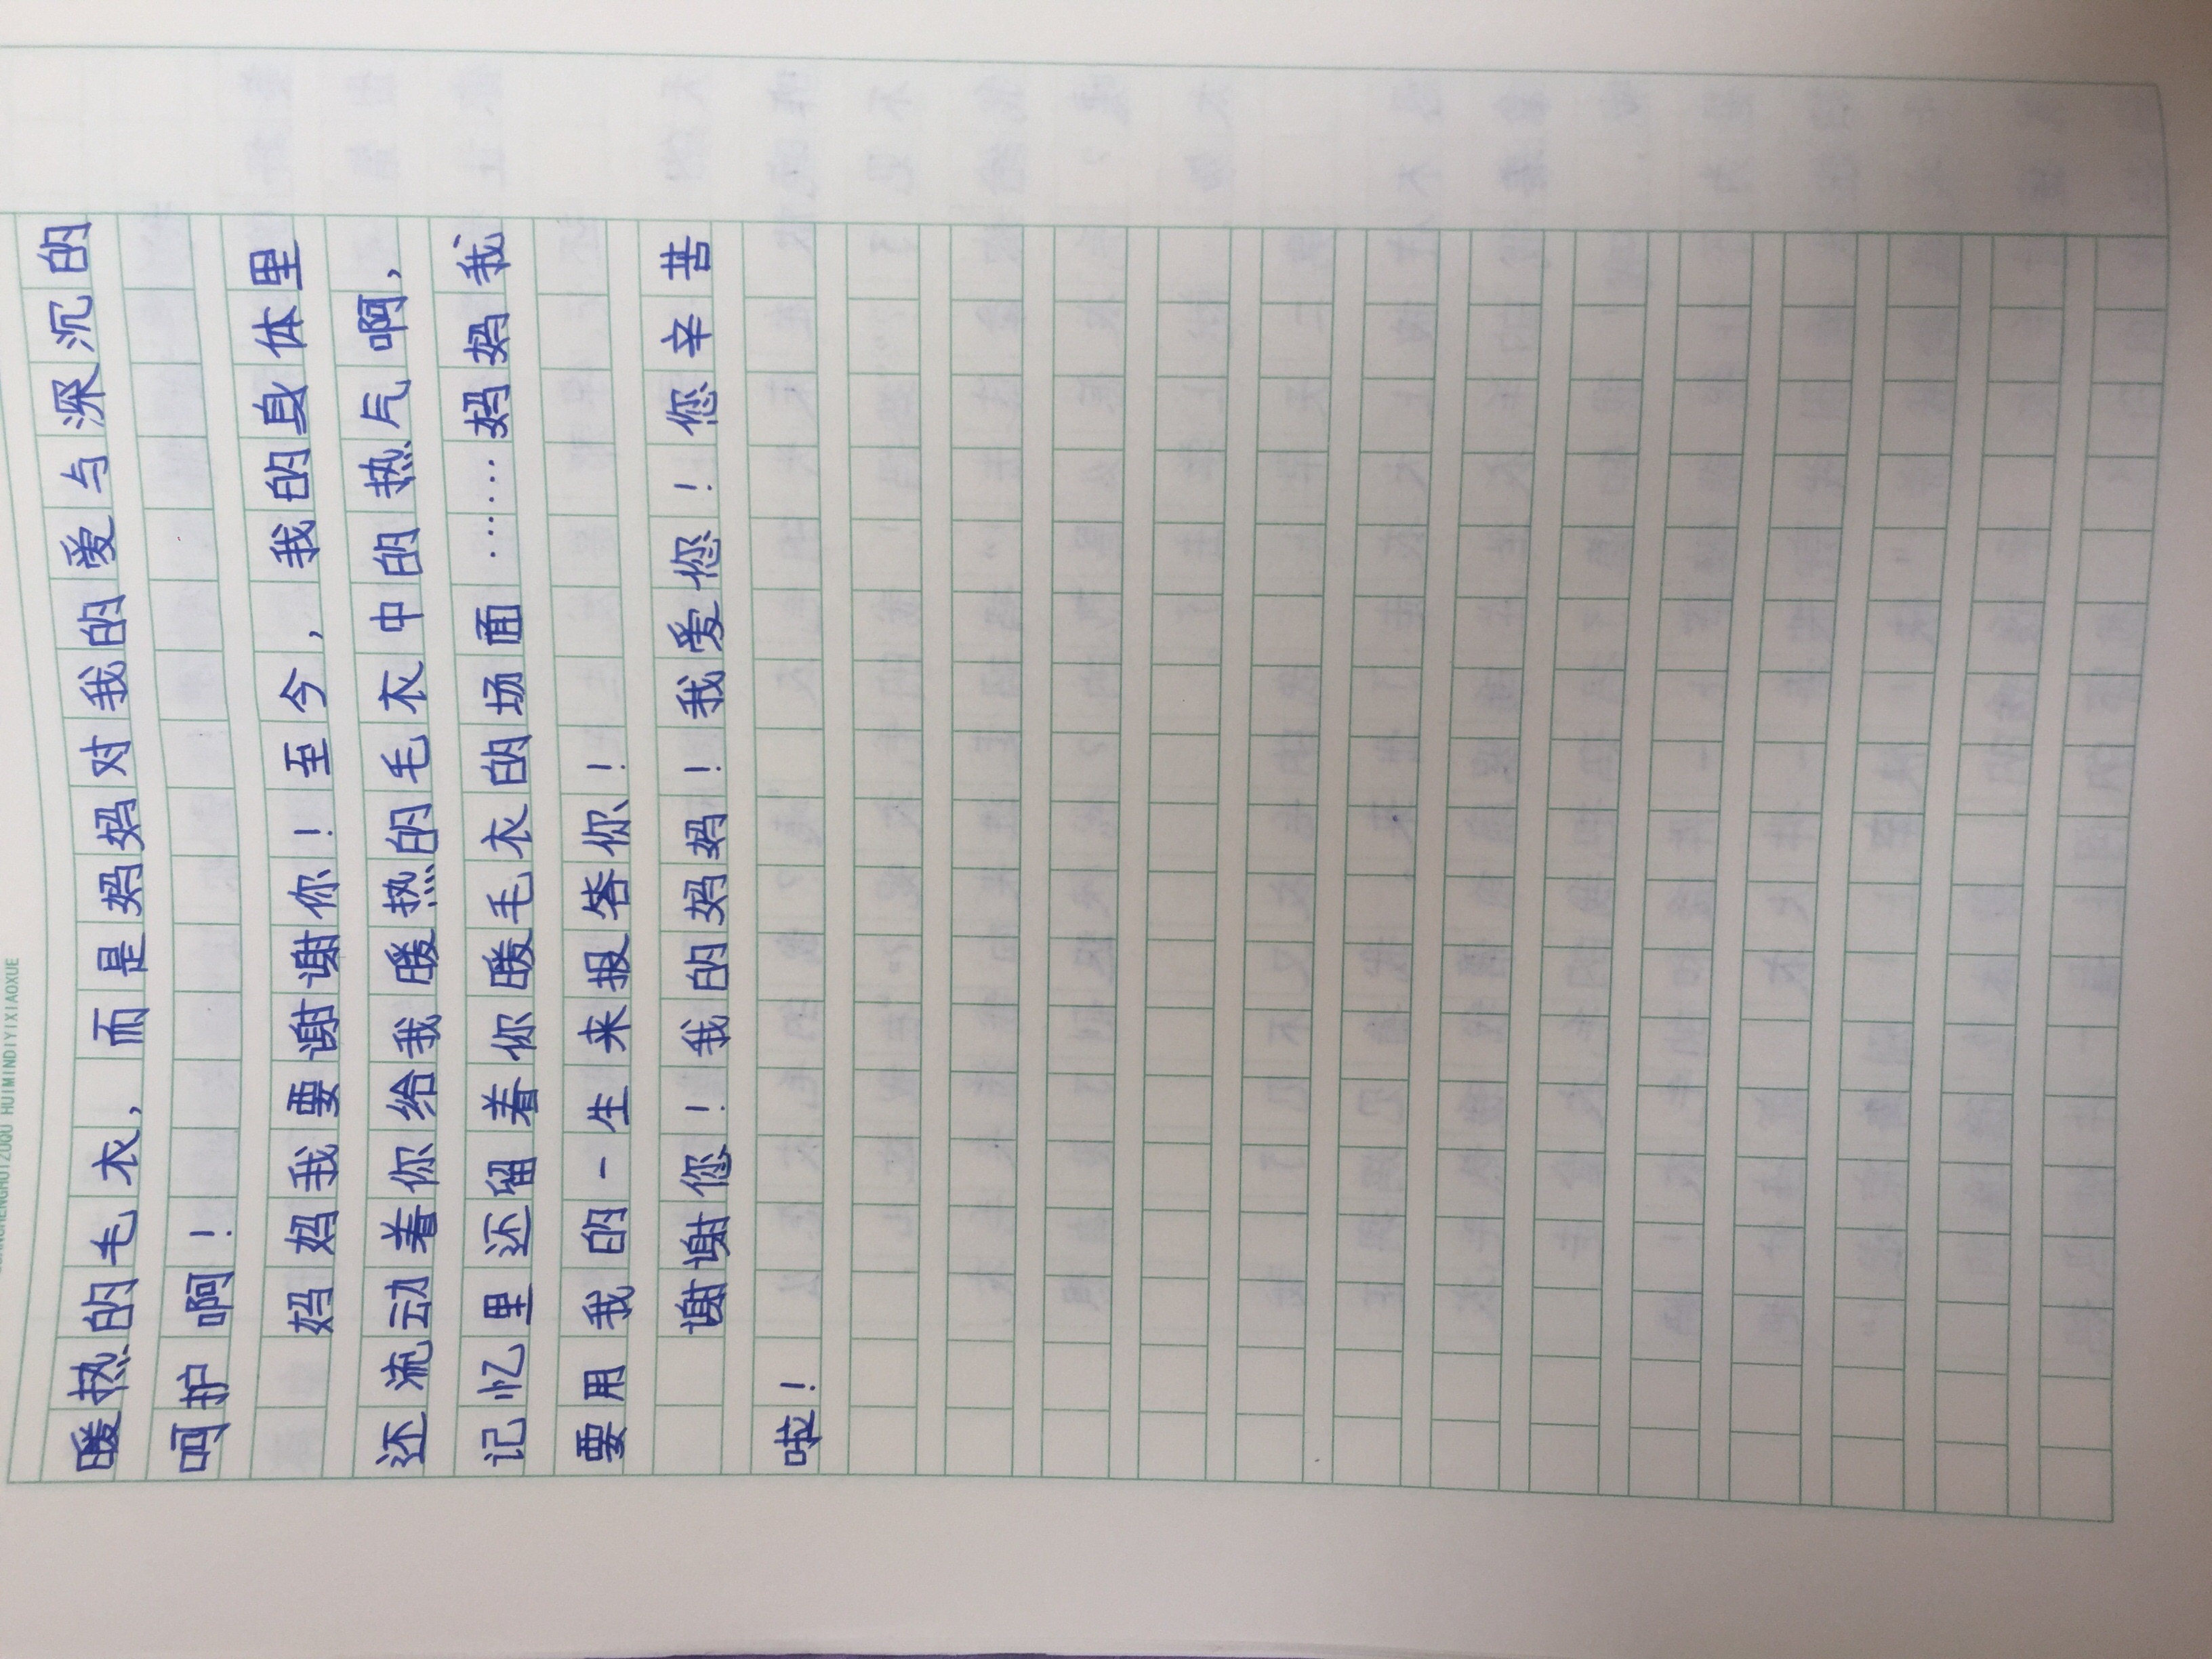 HUIMINDIYIXIAOXUE
暖热的毛衣，而是妈妈对我的爱与深沉的
呵护啊！
妈妈我要谢谢你！至今，我的身体里
还流动着你给我暖热的毛衣中的热气啊，
记忆里还留着你暖毛衣的场面……妈妈我
要用我的一生来报答你！
谢谢您！我的妈妈！我爱您！您辛苦
啦！